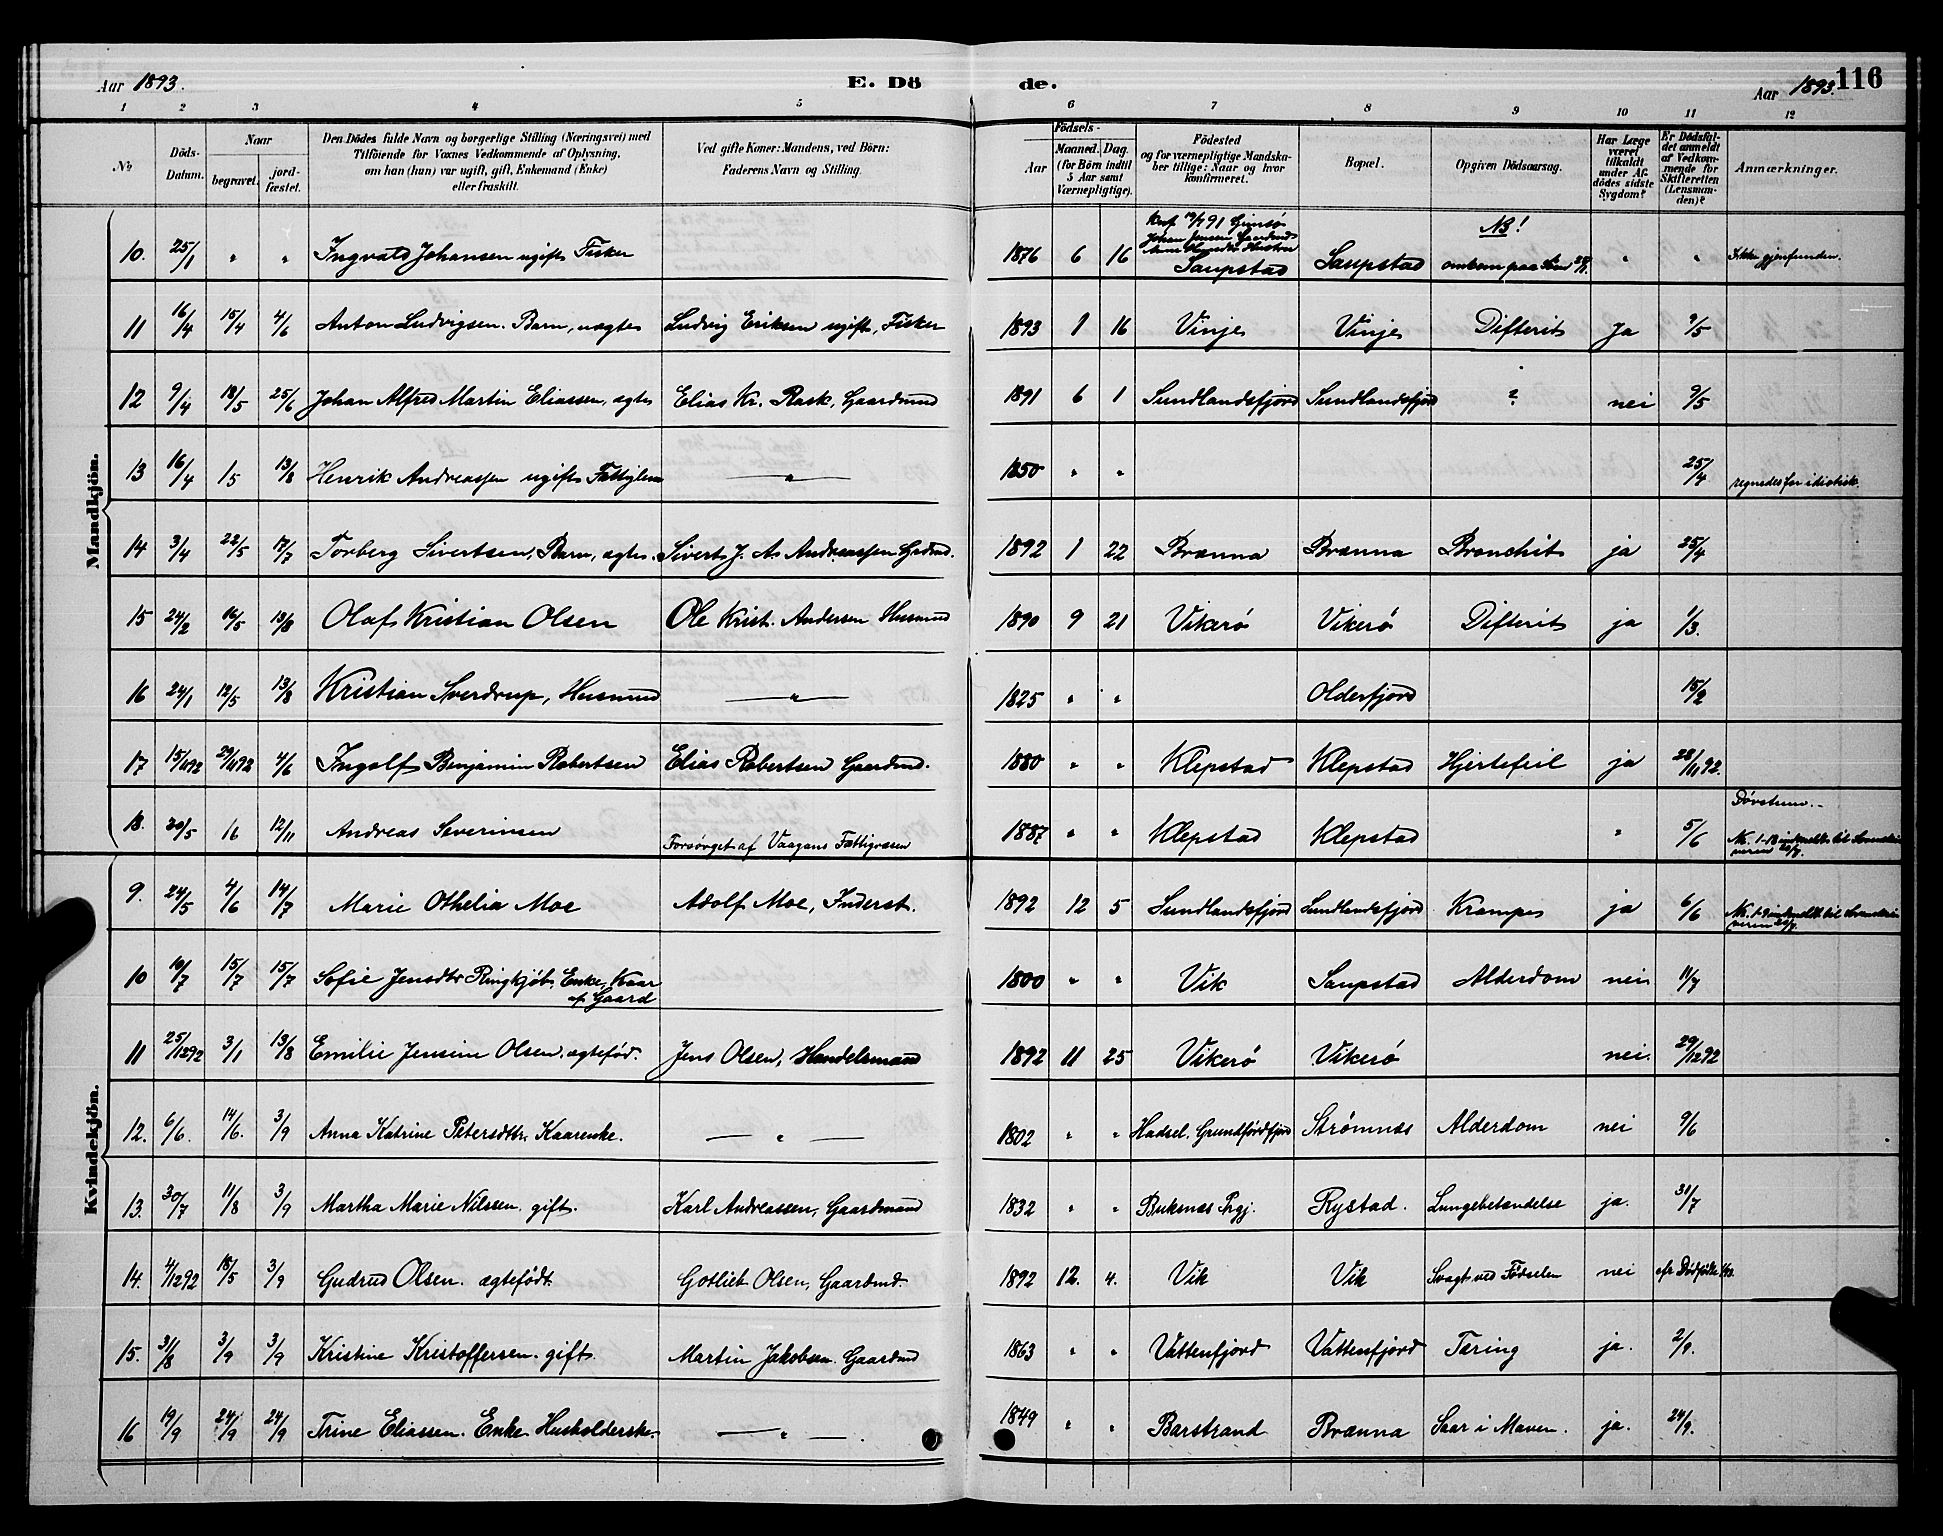 Aar 1893. E. Dö de. Aar 1893. 116
1 2 3 4 5 6 7 8 9 10 11 12
No
Döds-Datum.
Naar
begravet.
jord-fæstet.
Den Dödes fulde Navn og borgerlige Stilling (Næringsvei) med
Tilföiende for Voxnes Vedkommende af Oplysning,
om han (hun) var ugift, gift, Enkemand (Enke)
eller fraskilt.
Ved gifte Koner: Mandens, ved Börn:
Faderens Navn og Stilling.
Födsels-
Aar
Maaned. Dag.
(for Börn indtil
5 Aar samt
Værnepligtige).
Födested
og for værnepligtige Mandska-
ber tillige: Naar og hvor
konfirmeret.
Bopæl.
Opgiven Dödsaarsag.
Har Læge
været
tilkaldt
under Af-
dödes sidste
Sygdom?
Er Dödsfal-
det anmeldt
af Vedkom-
mende for
Skifteretten
(Lensman-
den)?
Anmærkninger.
Mandkjön.
Konf. 19/7 91 Gimsø
Johan Jensen Gaardmd
NB!
10. 25/1 " " Ingvald Johansen ugift Fisker 1876 6 16 Saupstad Saupstad omkom paa Søen " " Ikke gjenfunden.
11 16/4 15/4 4/6 Anton Ludvigsen. Barn, uægte Ludvig Eriksen ugift, Fisker 1893 1 16 Vinje Vinje Difterit Ja 9/5
12 9/4 18/5 25/6 Johan Alfred Martin Eliassen, ægte Elias Kr. Rask, Gaardmd 1891 6 1 Sundlandsfjord Sundlandsfjord ? nei 9/5
13 16/4 15 13/8 Henrik Andreassen ugift Fattiglem — " — 1850 " " 25/4 regnedes for idiotisk.
14 3/4 22/5 17/7 Torberg Sivertsen, Barn, ægte. Sivert J. A. Andreassen Grdmd. 1892 1 22 Brænna Brænna Bronchit ja 25/4
15 24/2 16/5 13/8 Olaf Kristian Olsen Ole Krist. Andersen Husmd 1890 9 21 Vikerø Vikerø Difterit ja 1/3.
16 24/1 12/5 13/8 Kristian Sverdrup, Husmd — " — 1825 " " Olderfjord 15/2
17 15/11 92 29/11 92 4/6 Ingolf Benjamin Robertsen Elias Robertsen Gaardmd. 1880 " " Klepstad Klepstad Hjertefeil ja 28/11 92.
Døvstum.
18. 30/5 16 12/11 Andreas Severinsen Forsørget af Vaagans Fattigvæsen 1887 " " Klepstad Klepstad " 5/6 No. 1-18 indmeldt til
Kvindekjön.
9. 24/5 4/6 14/7 Marie Othelia Moe Adolf Moe, Inderst. 1892 12 5 Sundlandsfjord Sundlandsfjord Krampe ja 6/6 No. 1-9 indmeldt til
10 10/7 15/7 15/7 Sofie Jensdtr Ringkjøb, Enke, Kaar
af Gaard 1800 " " Vik Saupstad Alderdom nei 11/7
11 25/12 92 3/1 13/8 Emilie Jensine Olsen, ægtefød. Jens Olsen, Handelsmand 1892 11 25 Vikerø Vikerø nei. 29/12 92
12. 6/6. 14/6. 3/9 Anna Katrine Petersdttr. Kaarenke. — " — 1802 " " Hadsel, Grundfördfjord Strømnæs Alderdom nei 9/6
13. 30/7 11/8 3/9 Martha Marie Nilssen. gift. Karl Andreassen, Gaardmand 1832 " " Buksnæs Prgj. Rystad. Lungebetændelse ja. 31/7
14. 4/12 92 18/5 3/9 Gudrud Olsen. ægtefødt. Gotlieb Olsen, Gaardmd. 1892 12. 4. Vik Vik Svagt ved Fødselen nei
15. 31/8 3/9 3/9 Kristine Kristoffersen. gift. Martin Jakobsen. Gaardmd 1863 " " Vattenfjord Vattenfjord Tæring ja. 2/9.
16 19/9 24/9 24/9 Trine Eliassen. Enke Husholderske. — " — 1849 " " Barstrand Brænna Saar i Maven. ja. 24/9.